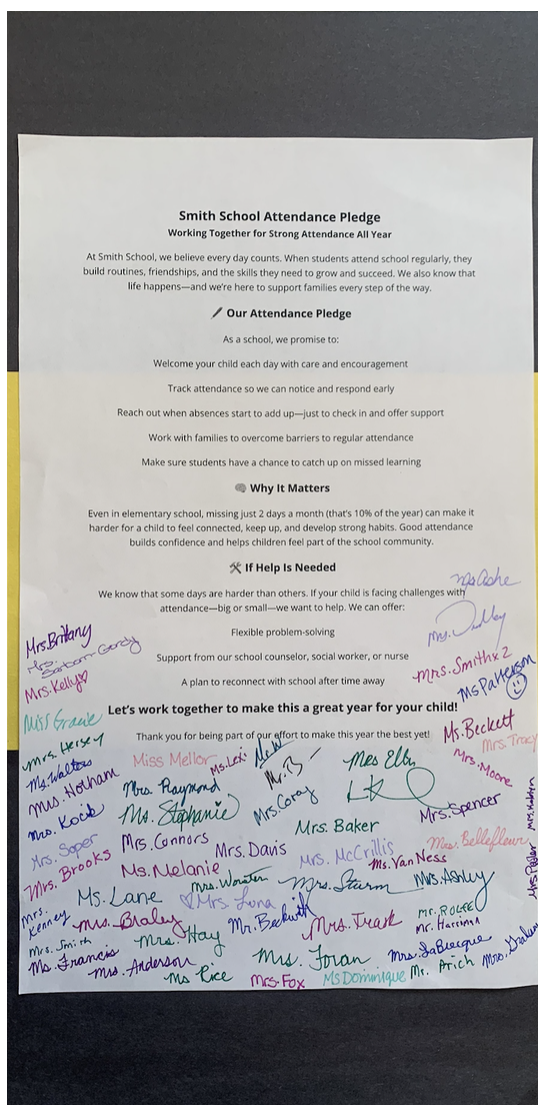 Smith School Attendance Pledge
Working Together for Strong Attendance All Year
At Smith School, we believe every day counts. When students attend school regularly, they
build routines, friendships, and the skills they need to grow and succeed. We also know that
life happens—and we're here to support families every step of the way.
Our Attendance Pledge
As a school, we promise to:
Welcome your child each day with care and encouragement
Track attendance so we can notice and respond early
Reach out when absences start to add up—just to check in and offer support
Work with families to overcome barriers to regular attendance
Make sure students have a chance to catch up on missed learning
Why It Matters
Even in elementary school, missing just 2 days a month (that's 10% of the year) can make it
harder for a child to feel connected, keep up, and develop strong habits. Good attendance
builds confidence and helps children feel part of the school community.
If Help Is Needed
We know that some days are harder than others. If your child is facing challenges with
attendance—big or small—we want to help. We can offer:
Flexible problem-solving
Support from our school counselor, social worker, or nurse
A plan to reconnect with school after time away
Let's work together to make this a great year for your child!
Thank you for being part of our effort to make this year the best yet!
Mrs. Dudley
Mrs. Brittany
Mrs. Kelly
Mrs. Smith x 2
Ms Patterson
Miss Gracie
Ms. Beckett
Mrs. Tracy
Mrs. Hersey
Miss Mellor
Ms. Lexi
Mr. W
Mr. B
Mrs Elly
Mrs. Moore
Ms. Walton
Mrs. Holham
Mrs. Raymond
Mrs. Coray
Mrs. Spencer
Mrs. Kocik
Ms. Stephanie
Mrs. Baker
Mrs. Soper
Mrs. Connors
Mrs. Davis
Mrs. McCrillis
Mrs. Bellefleur
Ms. Van Ness
Mrs. Brooks
Ms. Melanie
Mrs. Worster
Mrs. Sturm
Mrs. Ashley
Ms. Lane
Mrs. Luna
Mrs. Kenney
Mrs. Braley
Mr. Beckwith
Mrs. Trask
Mr. Rolfe
Mr. Harriman
Mrs. Smith
Mrs. Hay
Ms. Francis
Mrs. Anderson
Mrs. Foran
Mrs. LaBrecque
Mr. Arich
Mrs. Graham
Ms Rice
Mrs. Fox
Ms Dominique